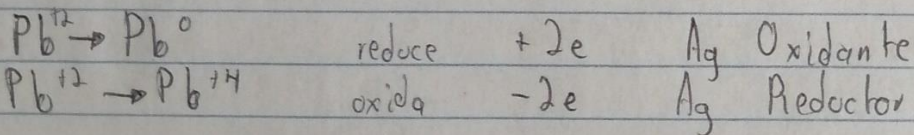 Pb⁺² → Pb⁰ reduce + 2e Ag Oxidante
Pb⁺² → Pb⁺⁴ oxida - 2e Ag Reductor